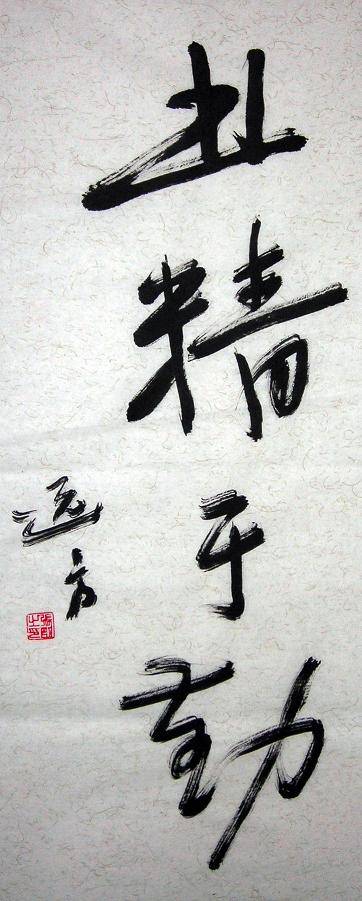 业精于勤
远方